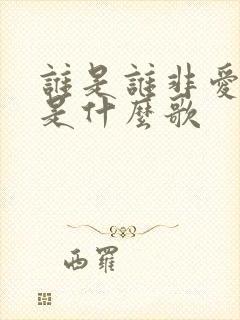 誰是誰非愛
是什麼歌
西羅